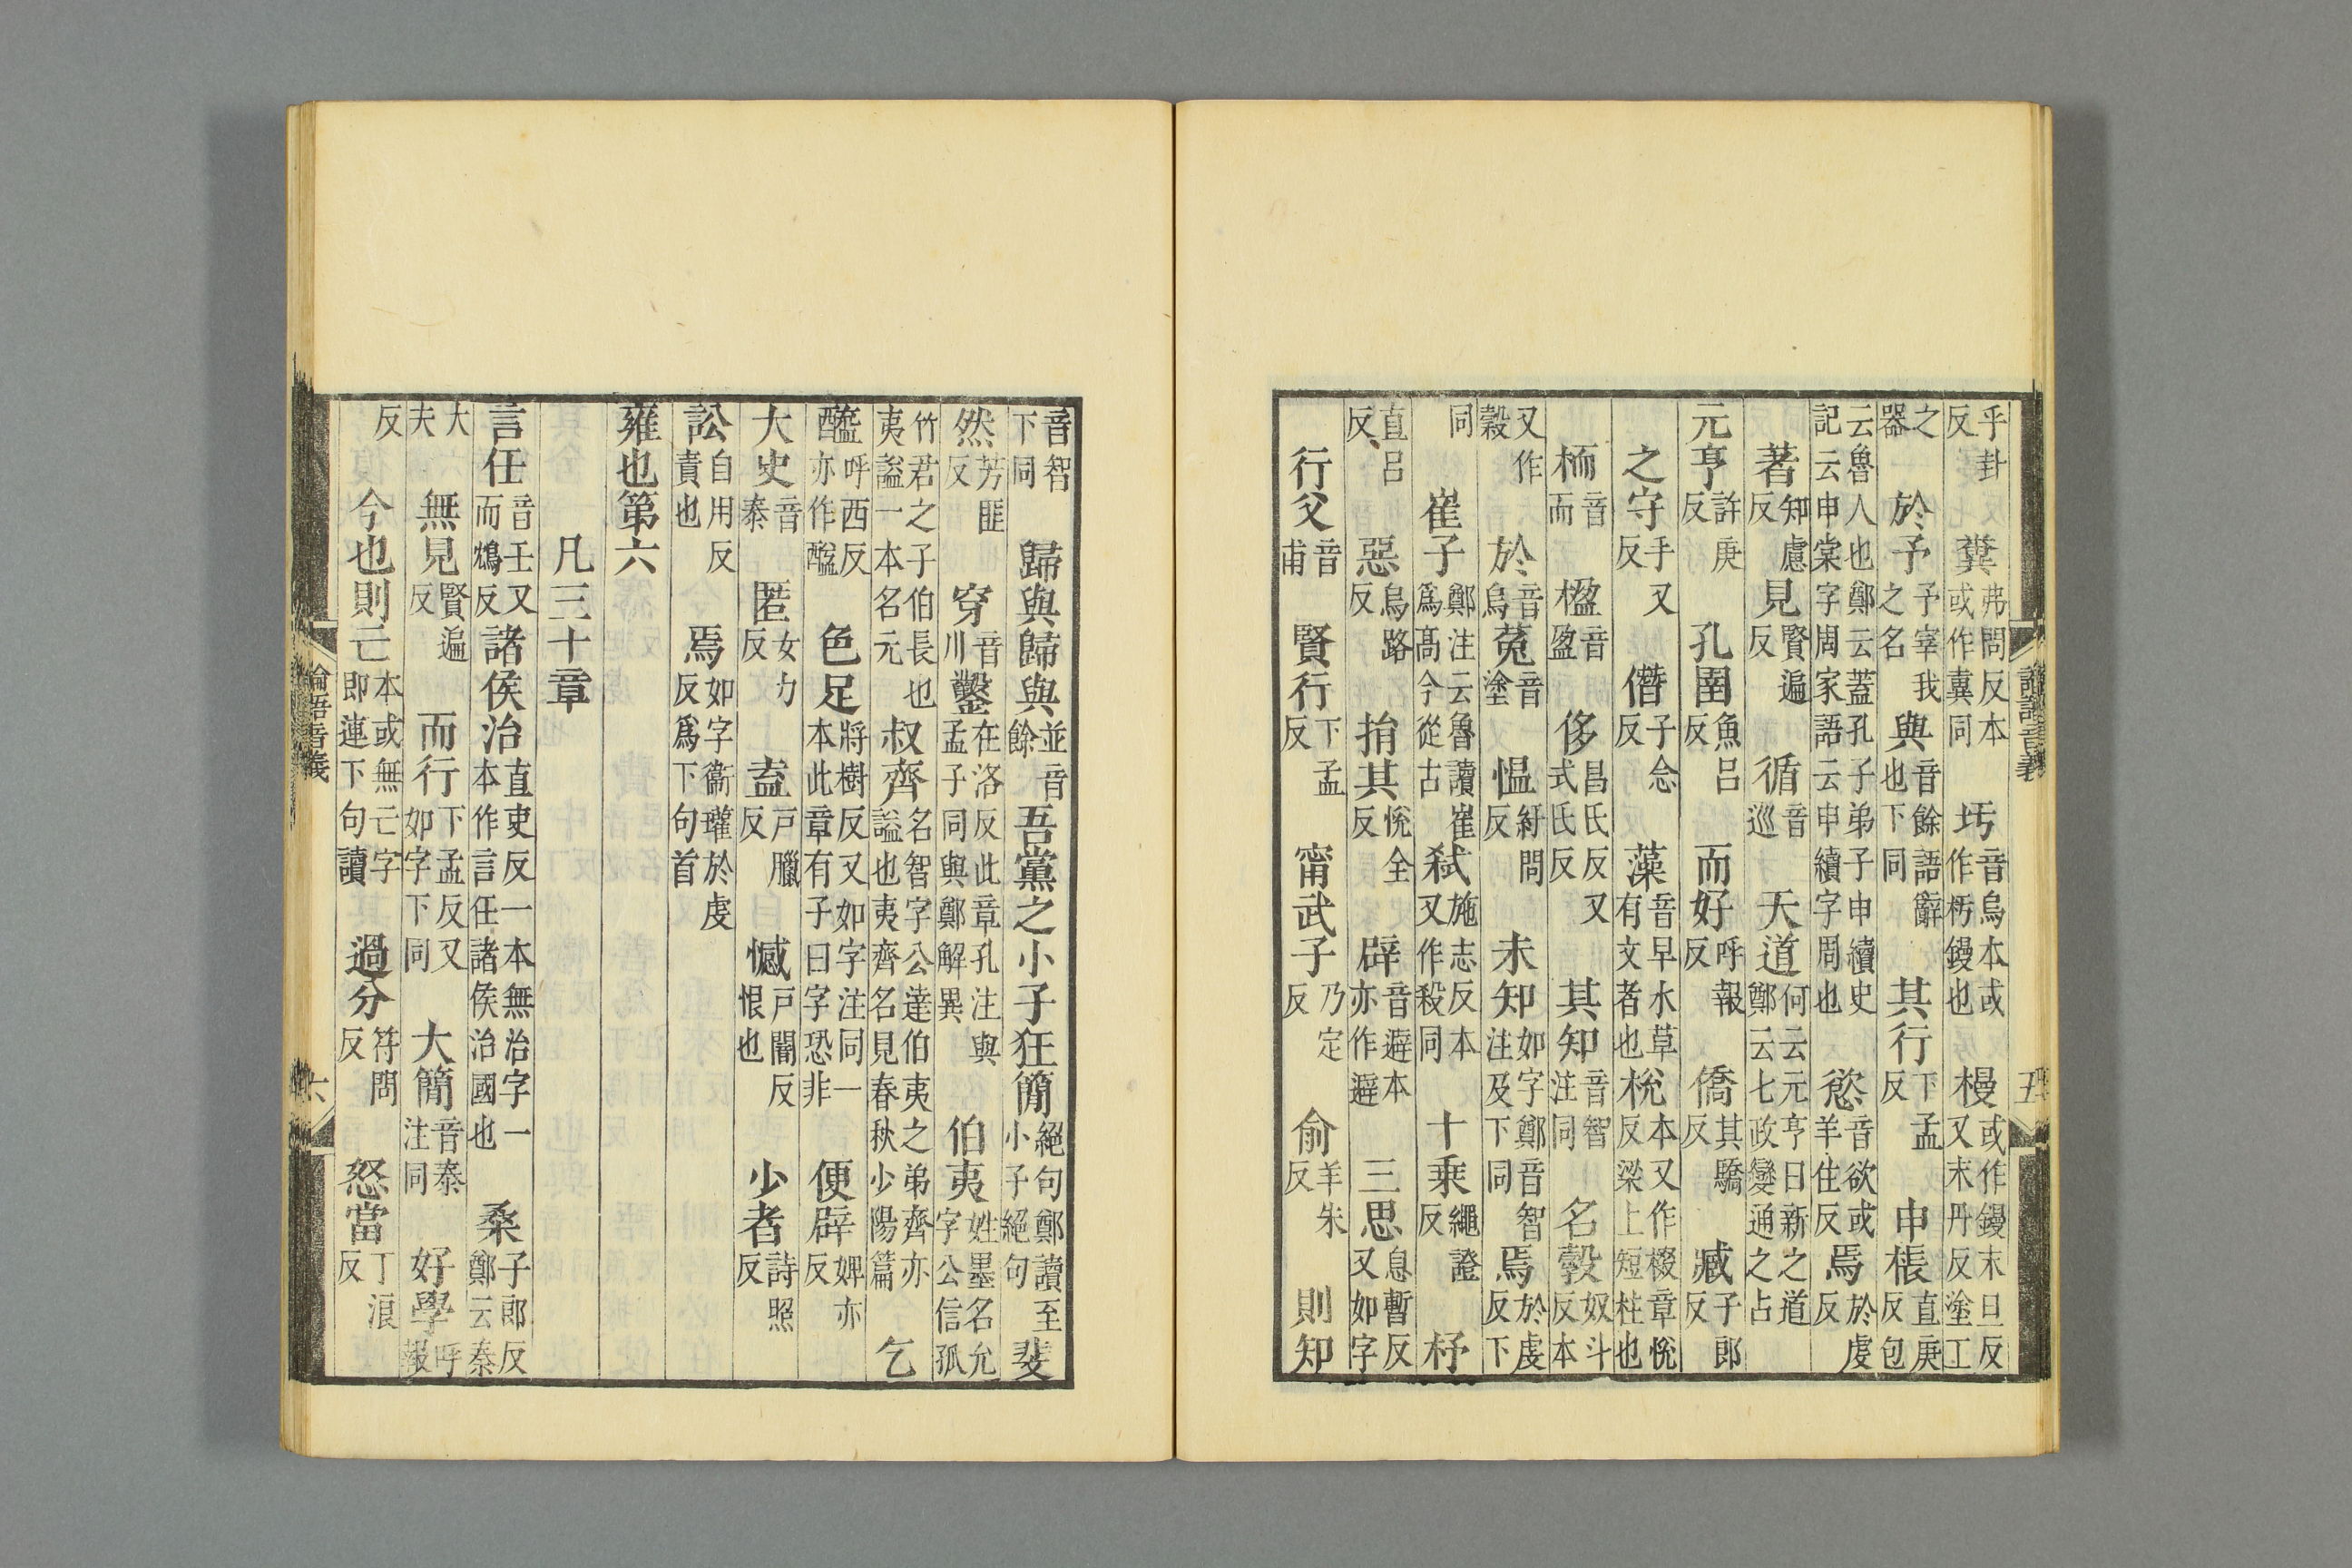 乎卦反糞弗問反本或作㒹同圬音烏本或作杇鏝也槾或作鏝末旦反又末丹反塗工
之器於予予宰我之名與音餘語辭也下同其行下孟反申棖直庚反包
云魯人也鄭云蓋孔子弟子申續史記云申棠字周家語云申續字周也慾音欲或羊住反焉於虔反
著知慮反見賢遍反循音巡天道何云元亨日新之道鄭云七政變通之占
元亨許庚反孔圉魚呂反而好呼報反僑其驕反臧子郎反
之守手又反僭子念反藻音早水草有文者也梲本又作棳章悅反梁上短柱也
栭音而楹音盈侈昌氏反又式氏反其知音智注同名穀奴斗反本
又作穀於音烏菟音塗慍紆問反未知如字鄭音智注及下同焉於虔反下
同崔子鄭注云魯讀崔爲高今從古弒施志反本又作殺同十乗繩證反杼
直呂反惡烏路反捐其悅全反辟音避本亦作避三思息暫反又如字
行父音甫賢行下孟反甯武子乃定反俞羊朱反則知
論語音義
五
音智下同歸與歸與並音餘吾黨之小子狂簡絕句鄭讀至小子絕句斐
然芳匪反穿音川鑿在洛反此章孔注與孟子同與鄭解異伯夷姓墨名允字公信孤
竹君之子伯長也夷謚一本名元叔齊名智字公達伯夷之弟齊亦謚也夷齊名見春秋少陽篇乞
醯呼西反亦作醯色足將樹反又如字注同一本此章有子曰字恐非便辟婢亦反
大史音泰匿女力反盍戶臘反憾戶闇反恨也少者詩照反
訟自用反責也焉如字衞瓘於虔反爲下句首
雍也第六
凡三十章
言任音壬又而鴆反諸侯治直吏反一本無治字一本作言任諸侯治國也桑子郎反鄭云秦
大夫無見賢遍反而行下孟反又如字下同大簡音泰注同好學呼報
反今也則亡本或無亡字即連下句讀過分符問反怒當丁浪反
論語音義
六